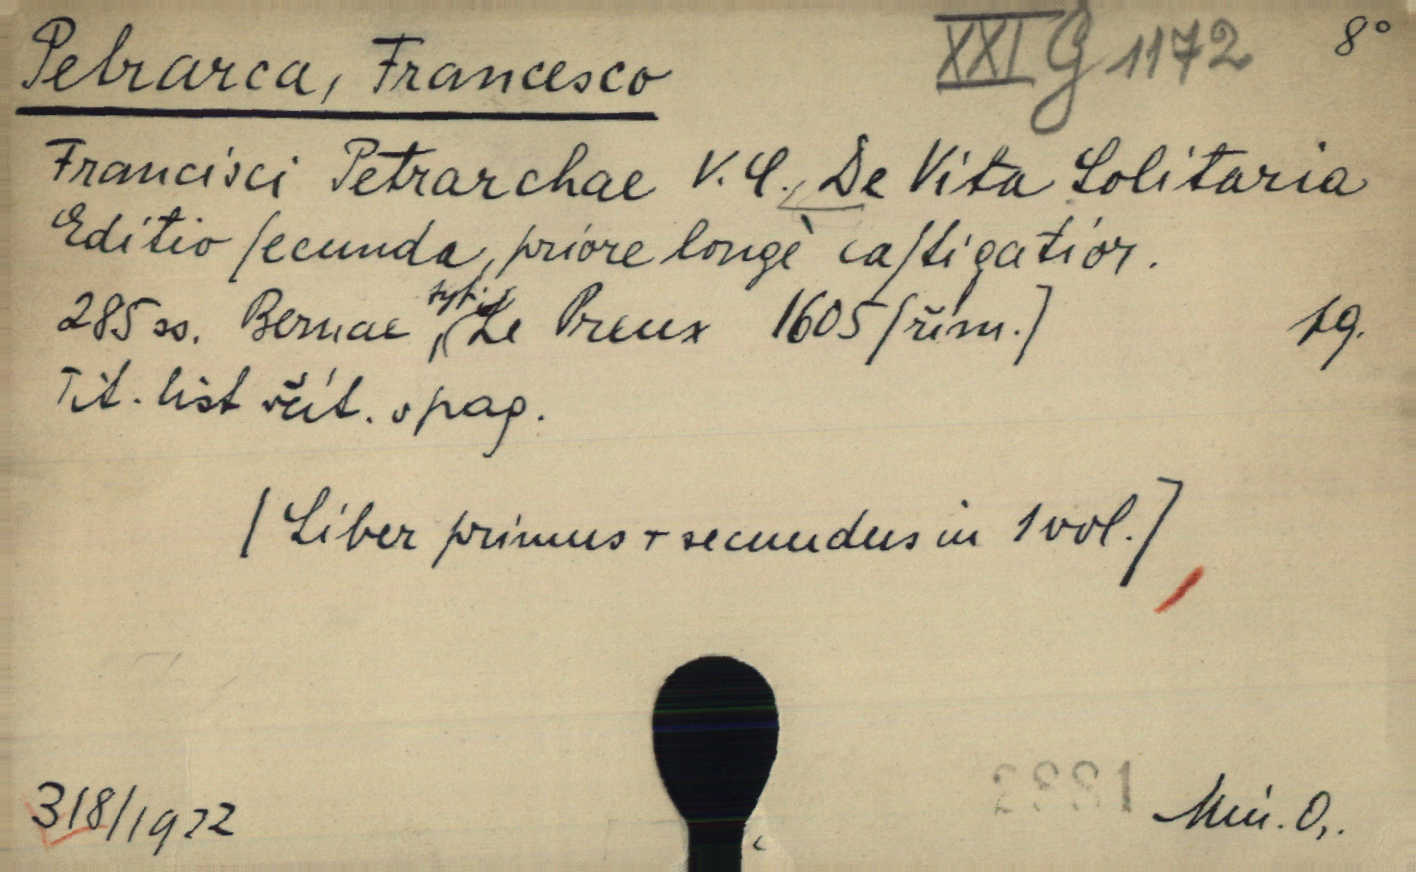 Petrarca, Francesco XXI G 1172 8°
Francisci Petrarchae V. C. De Vita Solitaria
Editio ſecunda, priore longè caſtigatior.
285 ss. Bernae, typis Le Preux 1605 [řím.] lg.
Tit. list včít. v pag.
[Liber primus + secundus in 1 vol.]
318/1922 2881 Min. O.